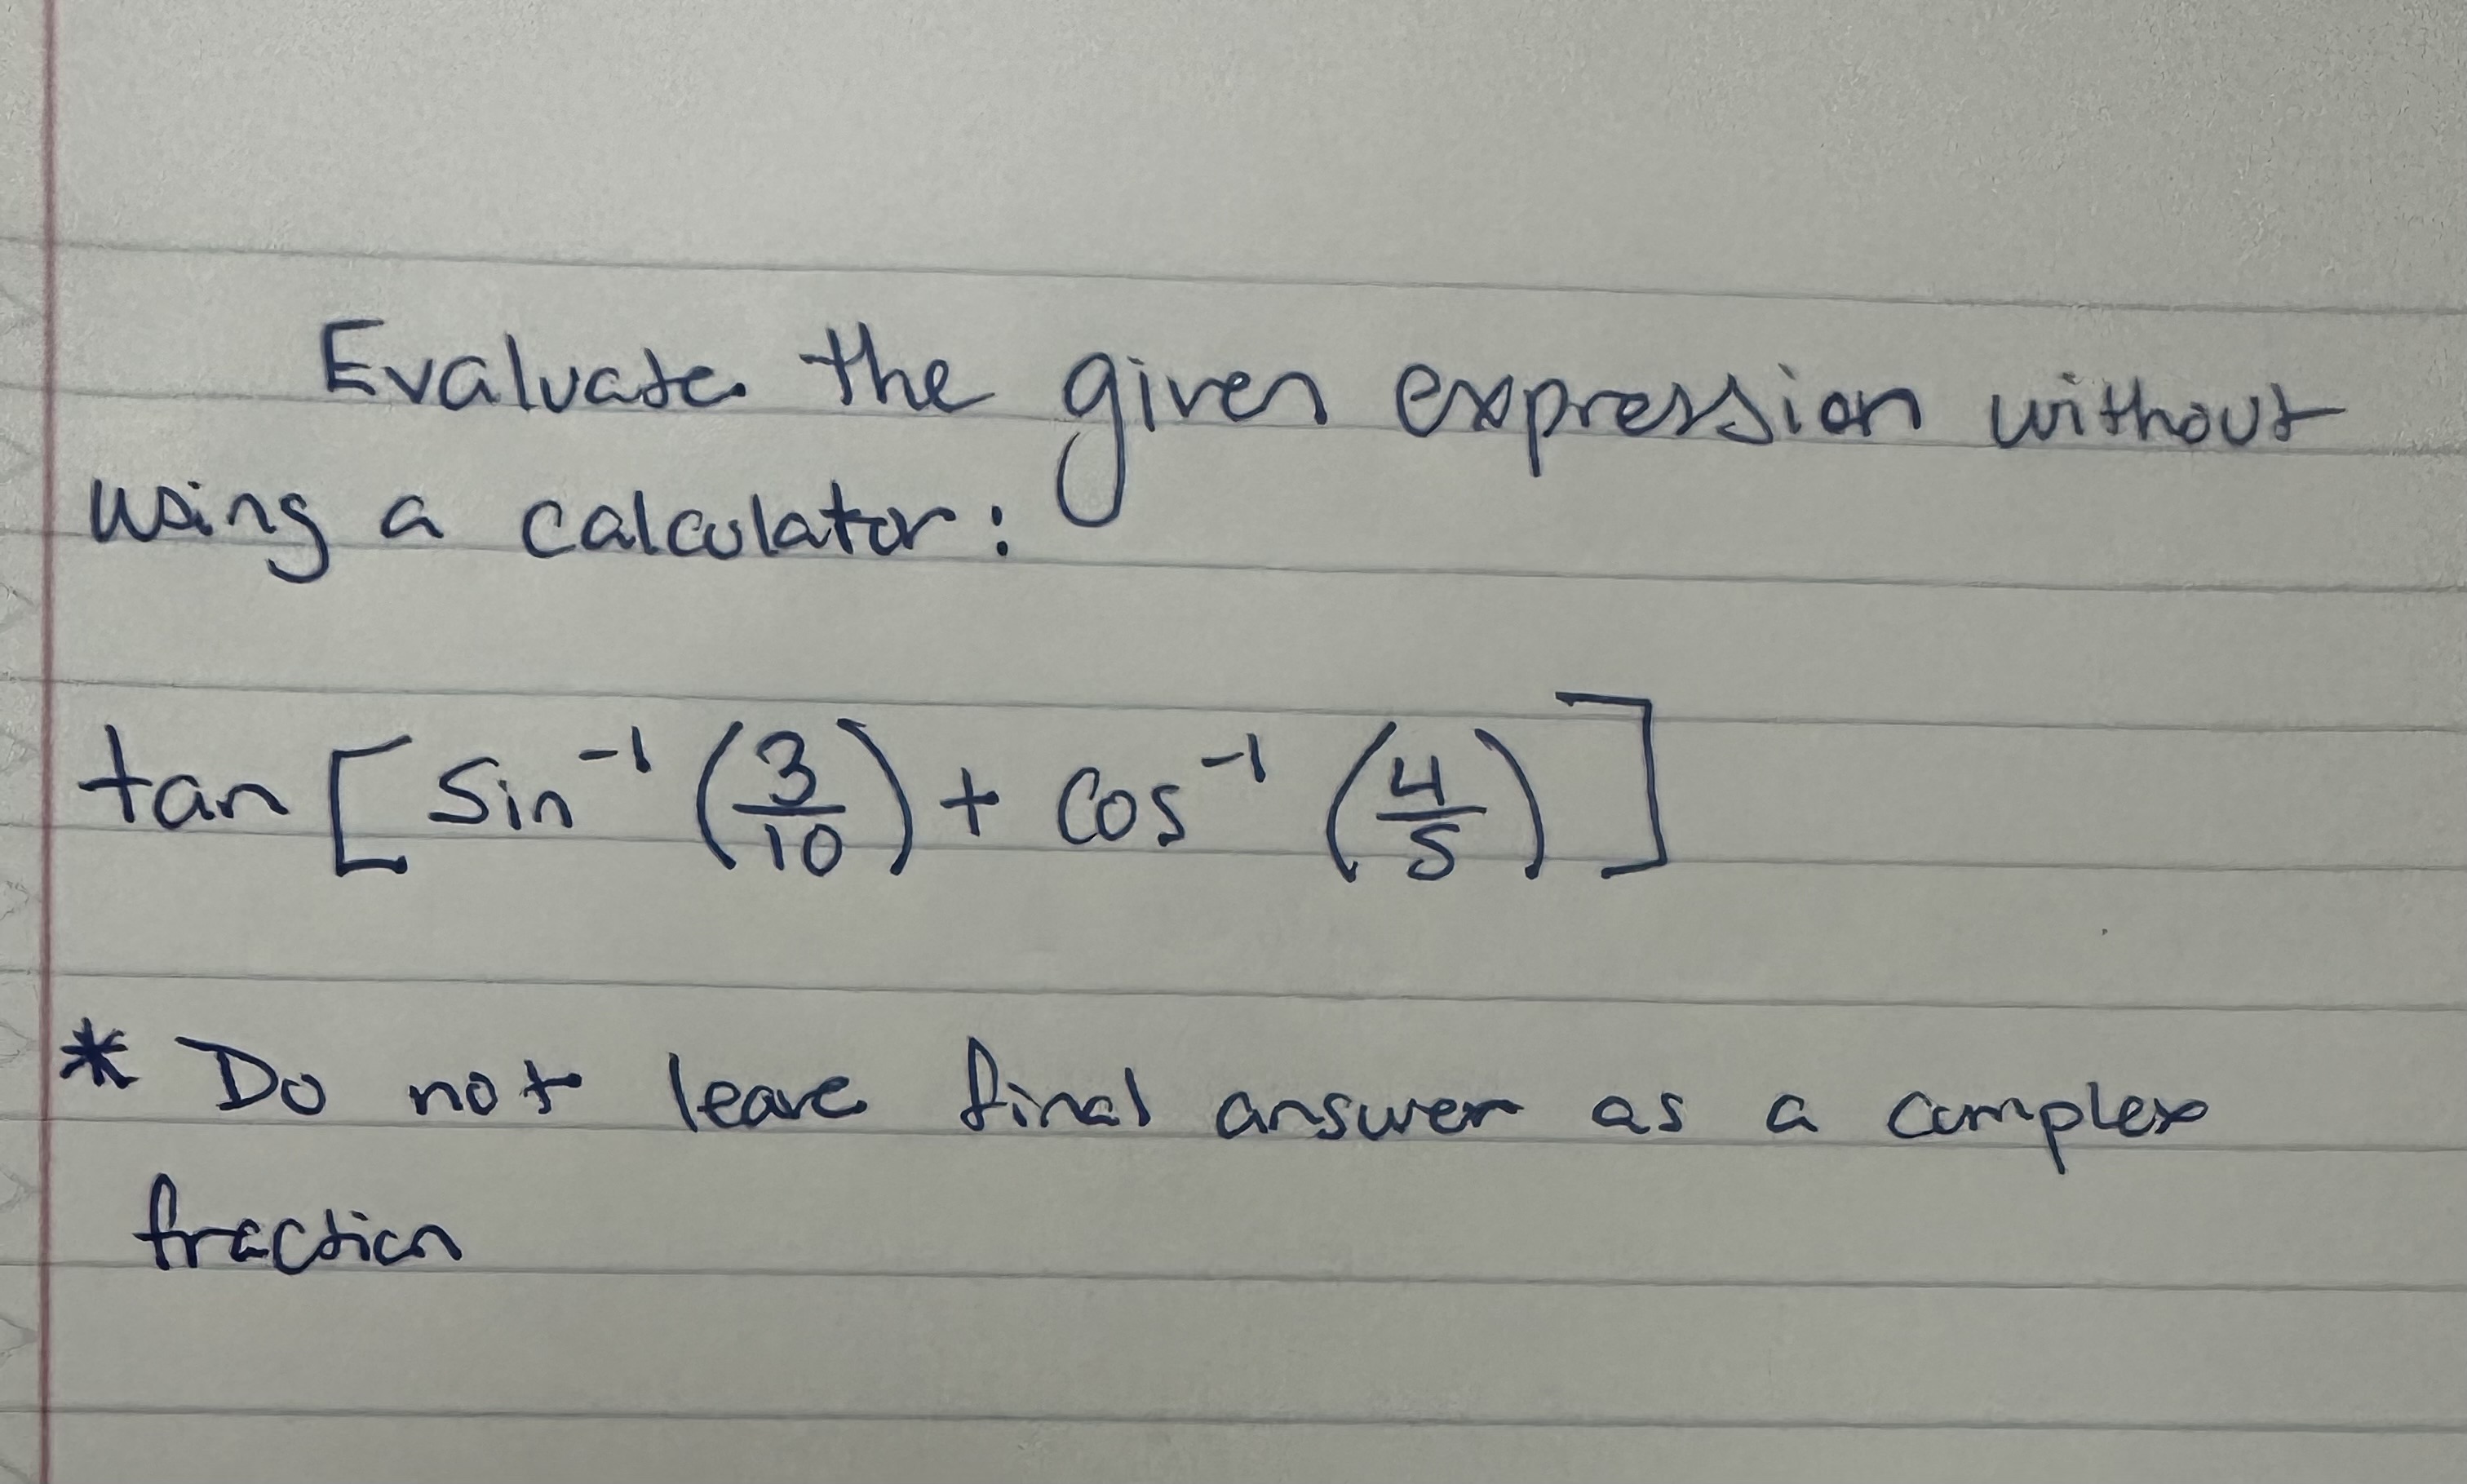 Evaluate the given expression without
using a calculator:
tan [ sin⁻¹ (3/10) + cos⁻¹ (4/5) ]
* Do not leave final answer as a complex
fraction